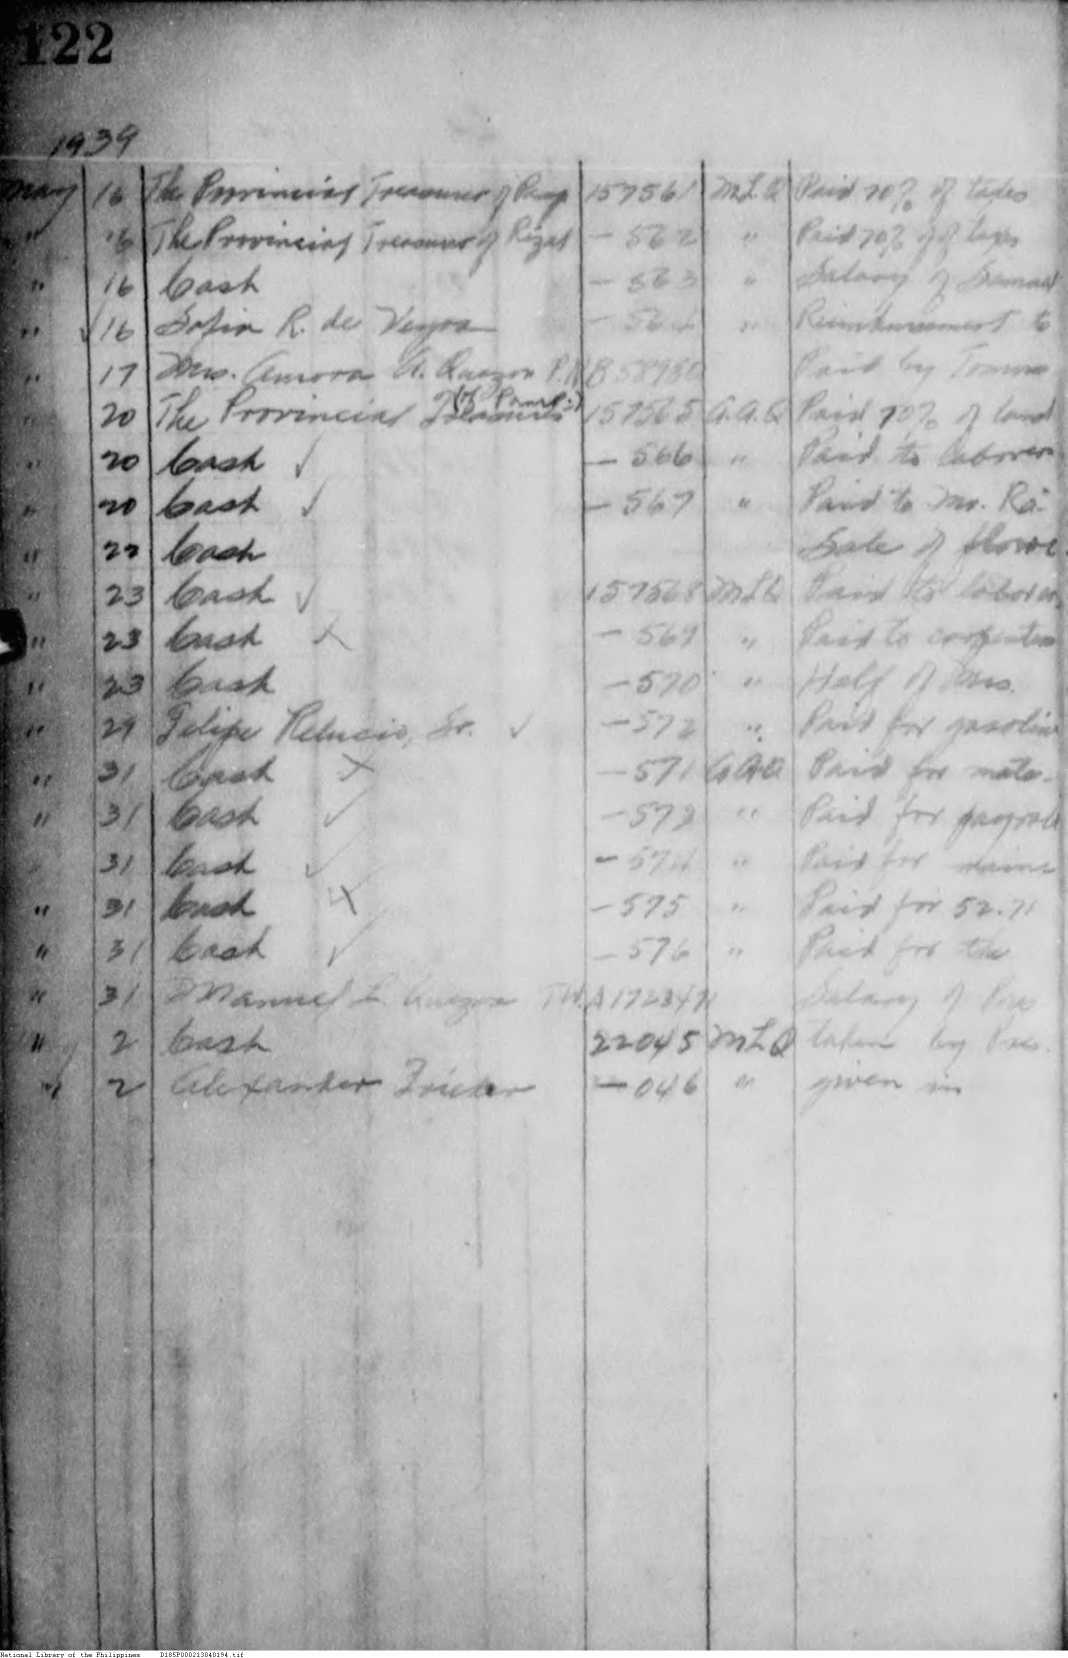 122
1939
May 16 The Provincial Treasurer of Pamp 157561 M.L.Q Paid 70% of taxes
" 16 The Provincial Treasurer of Rizal - 562 " Paid 70% of taxes
" 16 Cash - 563 " Salary of
" ✓ 16 Sofia R. de Veyra - 564 " Reimbursement to
" 17 Mrs. Aurora A. Quezon P.N.B Paid by
" 20 The Provincial Treasurer (of Pamp.) 157565 A.A.Q Paid 70% of land
" 20 Cash ✓ - 566 " Paid to laborers
" 20 Cash ✓ - 567 " Paid to Mr. Ra-
" 22 Cash Sale of
" 23 Cash ✓ 157568 MLQ Paid to laborers
" 23 Cash X - 569 " Paid to carpenters
" 23 Cash - 570 " Half of Mrs.
" 29 Felipe Relucio, Sr. ✓ - 572 " Paid for gasoline
" 31 Cash X - 571 A.A.Q Paid for mate-
" 31 Cash ✓ - 573 " Paid for payroll
31 Cash ✓ - 574 " Paid for
" 31 Cash X - 575 " Paid for 52.71
" 31 Cash ✓ - 576 " Paid for the
" 31 Manuel L. Quezon Salary of Pres
" 2 Cash 22045 MLQ taken by Pres.
" 2 Alexander - 046 " given in
National Library of the Philippines D185P000213040194.tif